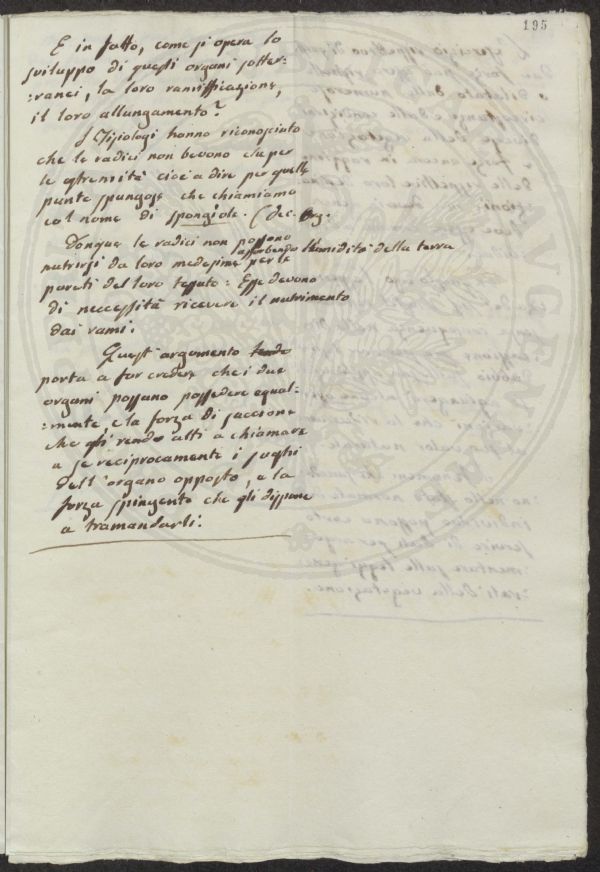 195
E in fatto, come si opera lo
sviluppo di questi organi sotter-
:ranei, la loro ramifficazione,
il loro allungamento?
I Fisiologi hanno riconosciuto
che le radici non bevono che per
le estremità cioè a dire per quelle
punte spungose che chiamiamo
col nome di spongiole. (dec. Org.
Donque le radici non possono
nutrirsi da loro medesime assorbendo l'umidità della terra per le
pareti del loro tessuto: Esse devono
di neccessità ricevere il nutrimento
dai rami.
Quest'argomento tende
porta a far credere che i due
organi possano possedere equal-
:mente, e la forza di suczione
che gli rende atti a chiamare
a se reciprocamente i sughi
dell'organo opposto, e la
forza spingente che gli dispone
a tramandarli.